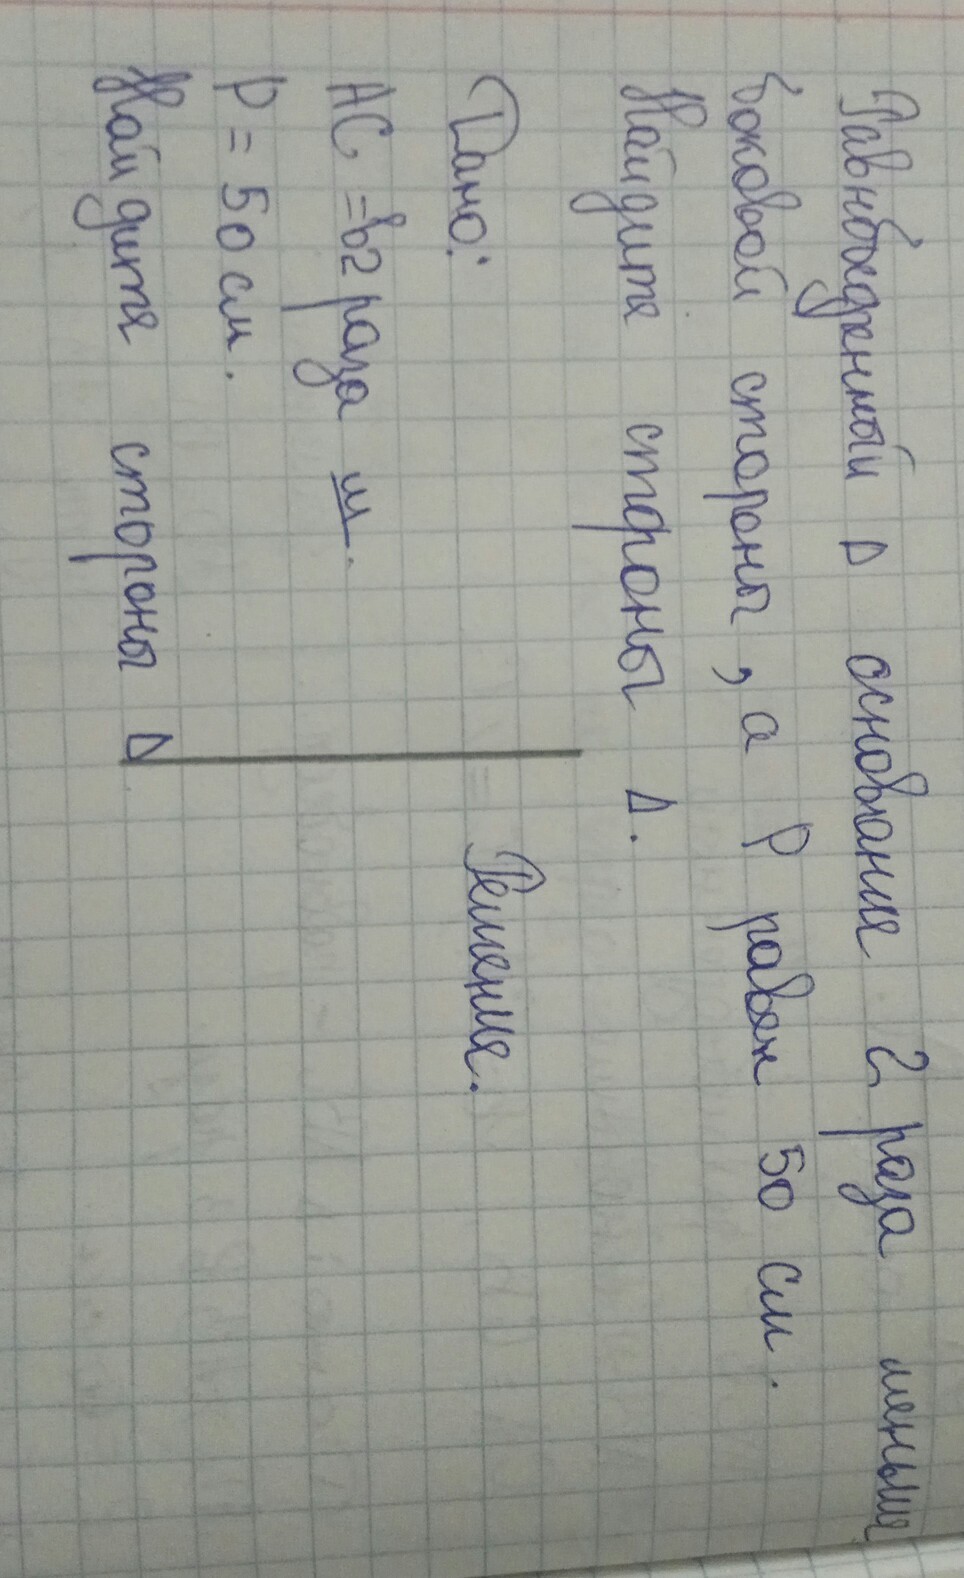 Равнбедренный Δ основания 2 раза меньше
боковой стороны, а P равен 50 см.
Найдите стороны Δ.
Дано: Решение.
AC = в 2 раза ш.
P = 50 см.
Найдите стороны Δ